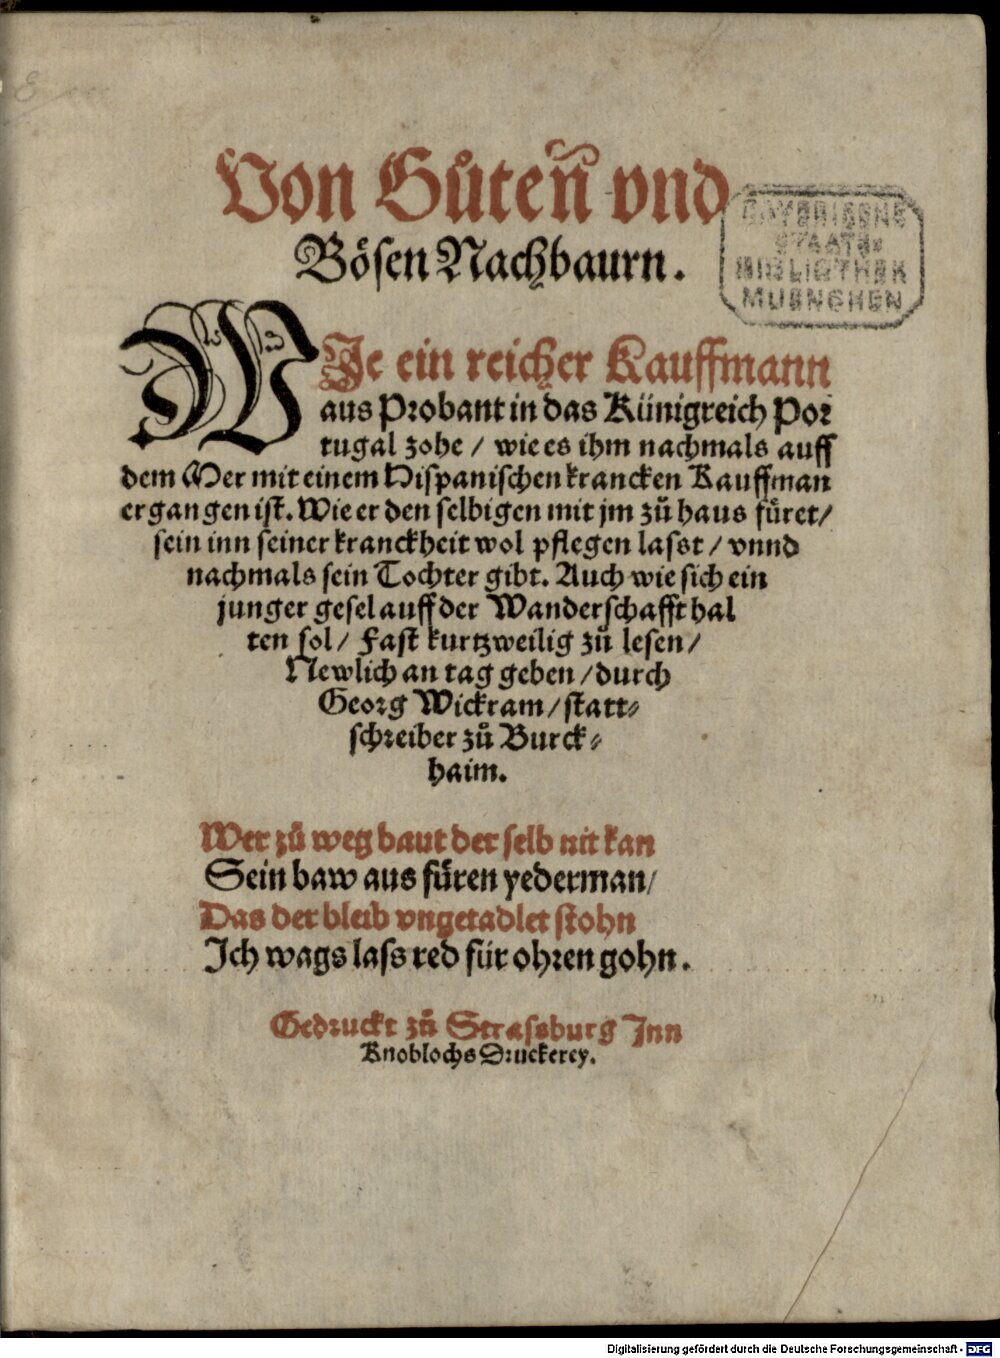 Von Gůteñ vnd
Bösen Nachbaurn.
BAYERISCHE
STAATS-
BIBLIOTHEK
MUENCHEN
WJe ein reicher Kauffmann
aus Probant in das Künigreich Por
tugal zohe / wie es ihm nachmals auff
dem Mer mit einem Hispanischen krancken Kauffman
ergangen ist. Wie er den selbigen mit jm zů haus füret /
sein inn seiner kranckheit wol pflegen lasst / vnnd
nachmals sein Tochter gibt. Auch wie sich ein
junger gesel auff der Wanderschafft hal
ten sol / Fast kurtzweilig zů lesen /
Newlich an tag geben / durch
Georg Wickram / statt⸗
schreiber zů Burck⸗
haim.
Wer zů weg baut der selb nit kan
Sein baw aus füren yederman /
Das der bleib vngetadlet stohn
Jch wags lass red für ohren gohn.
Gedruckt zů Strassburg Jnn
Knoblochs Druckerey.
Digitalisierung gefördert durch die Deutsche Forschungsgemeinschaft - DFG